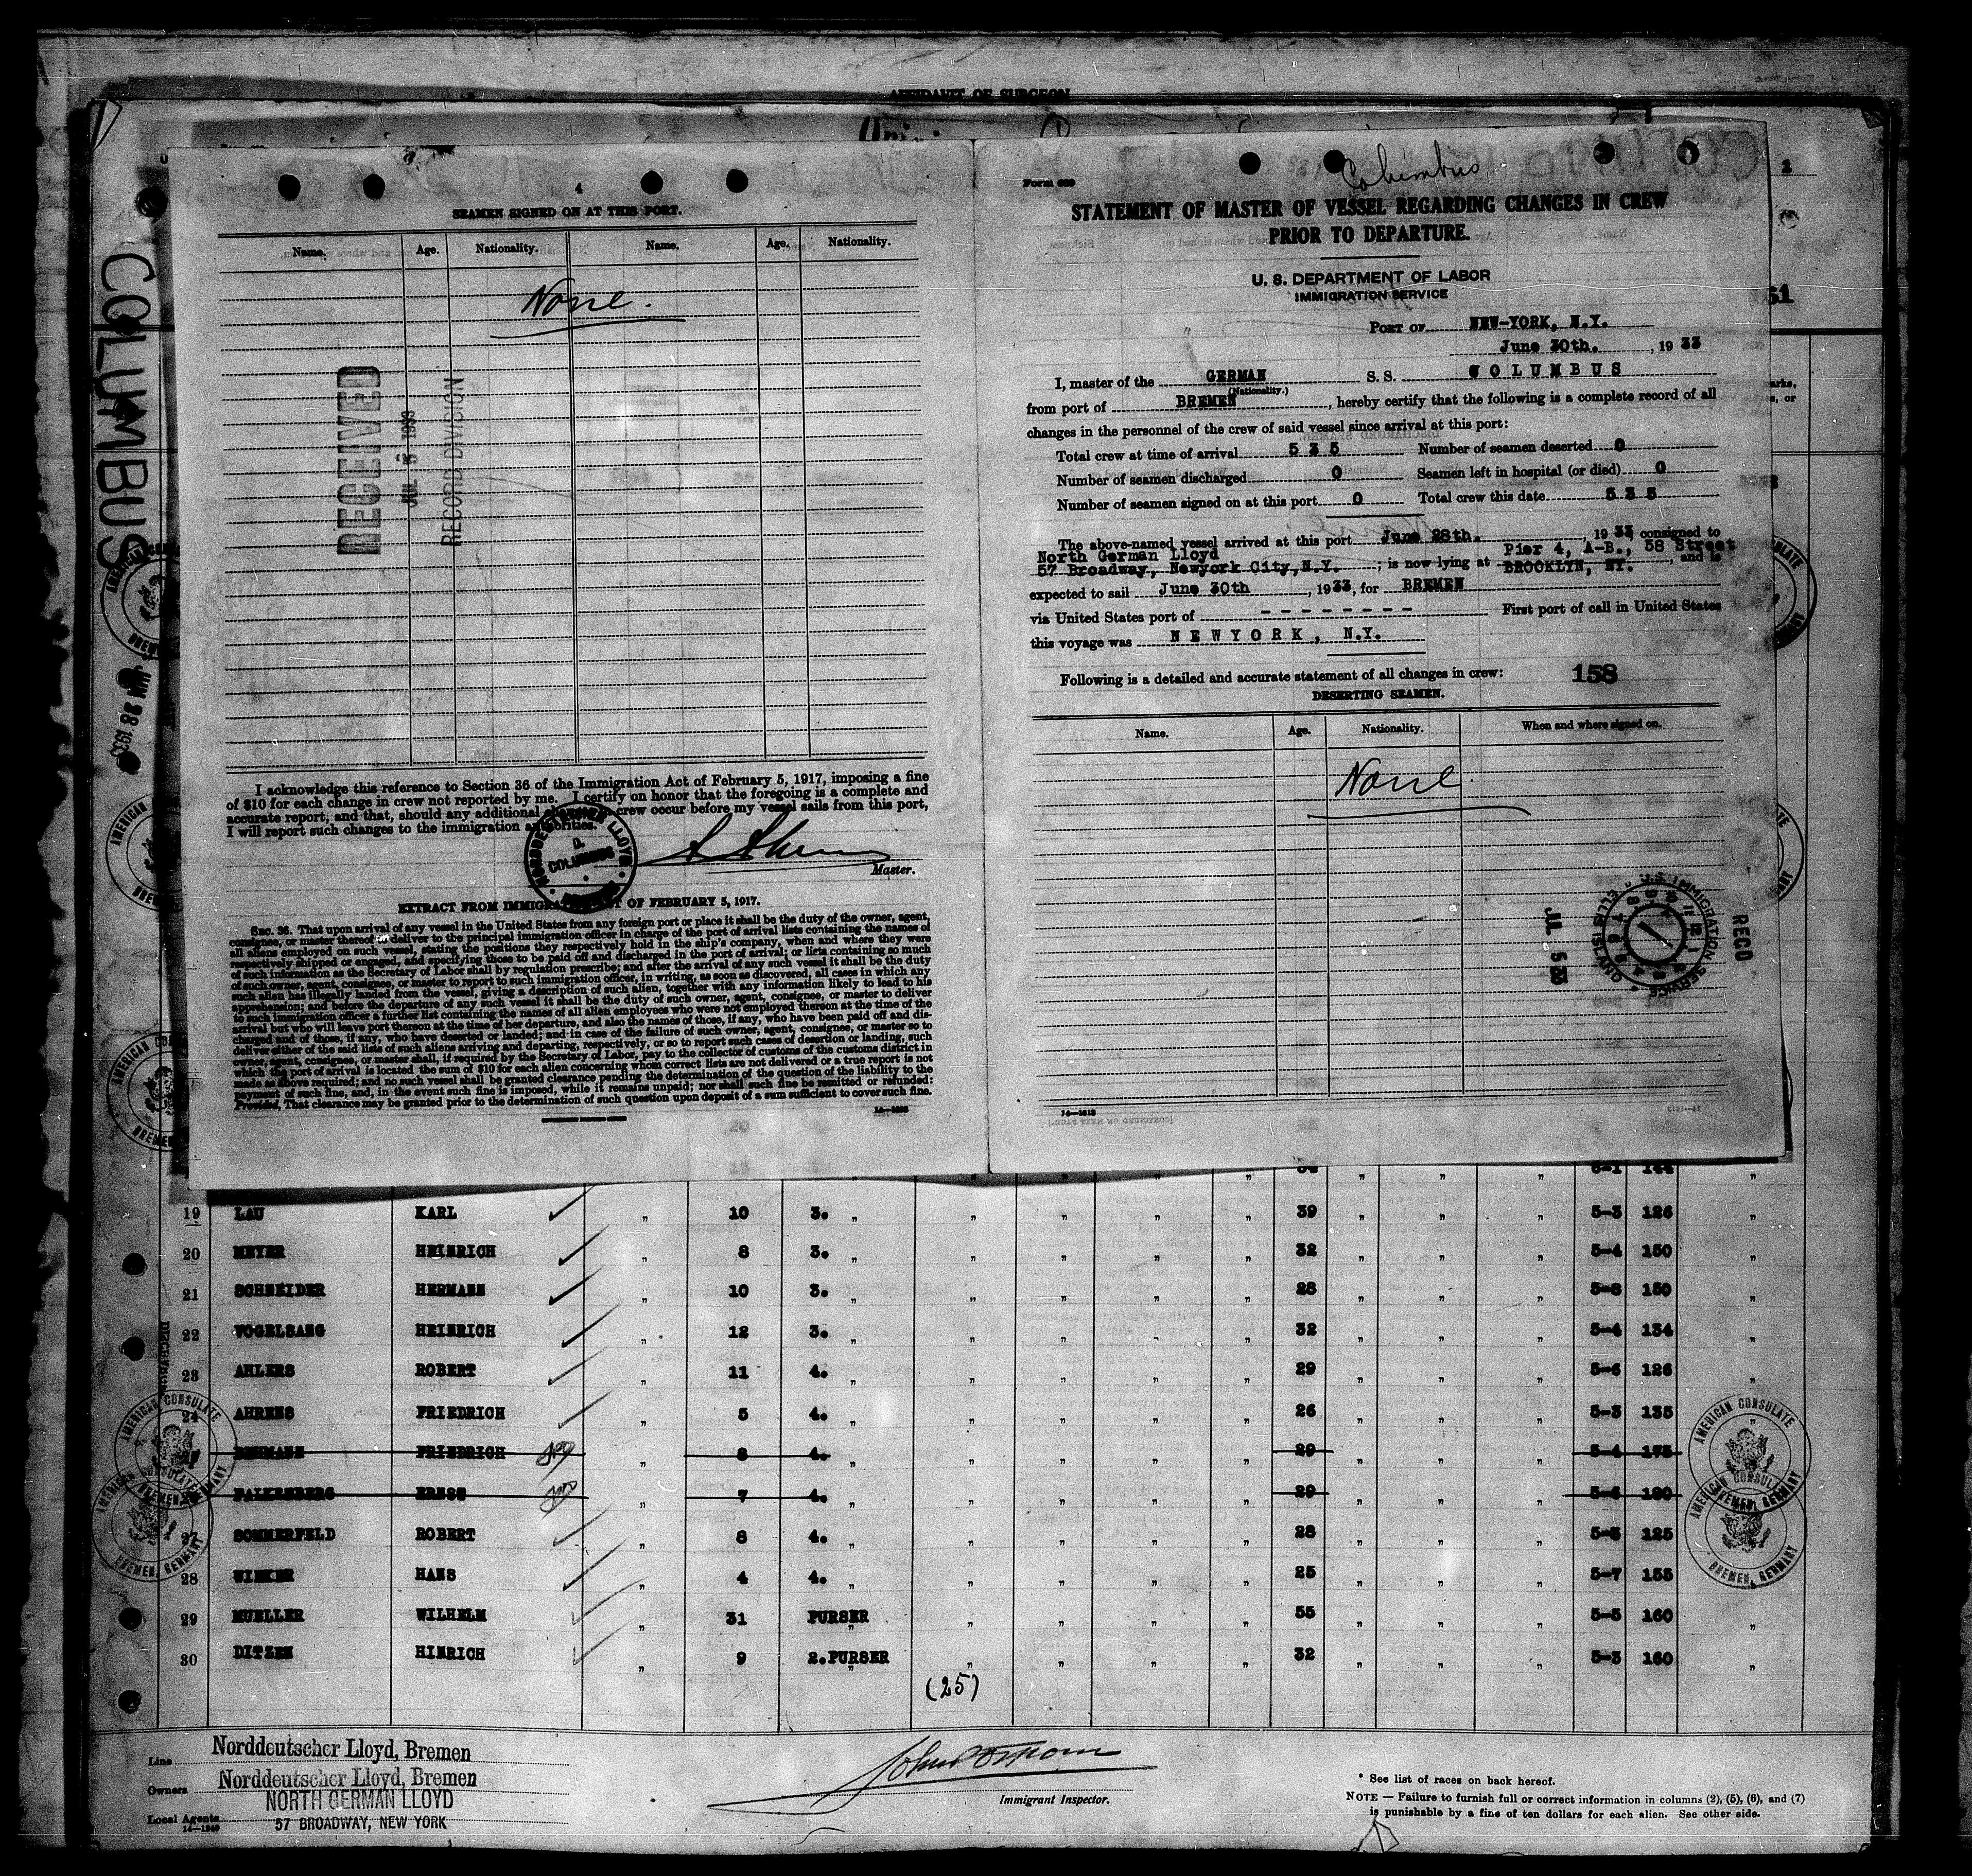 AFFIDAVIT OF SURGEON
4
SEAMEN SIGNED ON AT THIS PORT.
Name. Age. Nationality. Name. Age. Nationality.
None.
RECEIVED
JUL 5 1933
RECORD DIVISION
I acknowledge this reference to Section 36 of the Immigration Act of February 5, 1917, imposing a fine
of $10 for each change in crew not reported by me. I certify on honor that the foregoing is a complete and
accurate report, and that, should any additional crew occur before my vessel sails from this port,
I will report such changes to the immigration authorities.
NORDDEUTSCHER LLOYD
D.
COLUMBUS
Master.
EXTRACT FROM IMMIGRATION ACT OF FEBRUARY 5, 1917.
SEC. 36. That upon arrival of any vessel in the United States from any foreign port or place it shall be the duty of the owner, agent,
consignee, or master thereof to deliver to the principal immigration officer in charge of the port of arrival lists containing the names of
all aliens employed on such vessel, stating the positions they respectively hold in the ship's company, when and where they were
respectively shipped or engaged, and specifying those to be paid off and discharged in the port of arrival; or lists containing so much
of such information as the Secretary of Labor shall by regulation prescribe; and after the arrival of any such vessel it shall be the duty
of such owner, agent, consignee, or master to report to such immigration officer, in writing, as soon as discovered, all cases in which any
such alien has illegally landed from the vessel, giving a description of such alien, together with any information likely to lead to his
apprehension; and before the departure of any such vessel it shall be the duty of such owner, agent, consignee, or master to deliver
to such immigration officer a further list containing the names of all alien employees who were not employed thereon at the time of the
arrival but who will leave port thereon at the time of her departure, and also the names of those, if any, who have been paid off and dis-
charged and of those, if any, who have deserted or landed; and in case of the failure of such owner, agent, consignee, or master so to
deliver either of the said lists of such aliens arriving and departing, respectively, or so to report such cases of desertion or landing, such
owner, agent, consignee, or master shall, if required by the Secretary of Labor, pay to the collector of customs of the customs district in
which the port of arrival is located the sum of $10 for each alien concerning whom correct lists are not delivered or a true report is not
made as above required; and no such vessel shall be granted clearance pending the determination of the question of the liability to the
payment of such fine, and, in the event such fine is imposed, while it remains unpaid; nor shall such fine be remitted or refunded:
Provided, That clearance may be granted prior to the determination of such question upon deposit of a sum sufficient to cover such fine.
Columbus
STATEMENT OF MASTER OF VESSEL REGARDING CHANGES IN CREW
PRIOR TO DEPARTURE.
U. S. DEPARTMENT OF LABOR
IMMIGRATION SERVICE
PORT OF NEW-YORK, N.Y.
June 30th. , 1933
I, master of the GERMAN S. S. COLUMBUS
(Nationality.)
from port of BREMEN , hereby certify that the following is a complete record of all
changes in the personnel of the crew of said vessel since arrival at this port:
Total crew at time of arrival 535 Number of seamen deserted 0
Number of seamen discharged 0 Seamen left in hospital (or died) 0
Number of seamen signed on at this port 0 Total crew this date 535
The above-named vessel arrived at this port June 28th. , 1933 consigned to
North German Lloyd Pier 4, A-B., 58 Street
57 Broadway, Newyork City, N.Y. ; is now lying at BROOKLYN, NY. , and is
expected to sail June 30th , 1933, for BREMEN
via United States port of - - - - - - - - First port of call in United States
this voyage was NEWYORK, N.Y.
Following is a detailed and accurate statement of all changes in crew: 158
DESERTING SEAMEN.
Name. Age. Nationality. When and where signed on.
None.
U.S. IMMIGRATION SERVICE
ELLIS ISLAND
REC'D
JUL 5 33
14—1313
COLUMBUS
JUN 28 1933
AMERICAN CONSULATE
BREMEN, GERMANY
19 LAU KARL " 10 3. " " " " " 39 " " " 5-3 126 "
20 MEYER HEINRICH " 8 3. " " " " " 32 " " " 5-4 150 "
21 SCHNEIDER HERMANN " 10 3. " " " " " 28 " " " 5-8 150 "
22 VOGELSANG HEINRICH " 12 3. " " " " " 32 " " " 5-4 134 "
23 AHLERS ROBERT " 11 4. " " " " " 29 " " " 5-6 126 "
24 AHRENS FRIEDRICH " 5 4. " " " " " 26 " " " 5-3 135 "
25 FRIEDRICH " 8 4. " " " " " 29 " " " 5-4 175 "
26 FALKENBERG " 7 4. " " " " " 29 " " " 5-6 180
27 SOMMERFELD ROBERT " 8 4. " " " " " 28 " " " 5-5 125
28 WIEKER HANS " 4 4. " " " " " 25 " " " 5-7 155
29 MUELLER WILHELM " 31 PURSER " " " " 55 " " " 5-5 160 "
30 DITZEN HINRICH " 9 2.PURSER " " " " 32 " " " 5-3 160 "
(25)
Line Norddeutscher Lloyd, Bremen
Owners Norddeutscher Lloyd, Bremen
NORTH GERMAN LLOYD
Local Agents 57 BROADWAY, NEW YORK
14—1240
Immigrant Inspector.
* See list of races on back hereof.
NOTE — Failure to furnish full or correct information in columns (2), (5), (6), and (7)
is punishable by a fine of ten dollars for each alien. See other side.